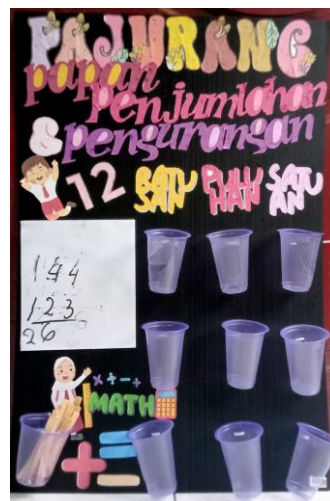 PAJURANG
papan
penjumlahan
& pengurangan
12
RATU SAN
PULU HAN
SATU AN
123
26
MATH